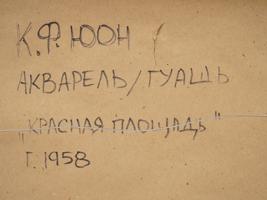 К.Ф. ЮОН
АКВАРЕЛЬ/ГУАШЬ
„КРАСНАЯ ПЛОЩАДЬ"
Г. 1958